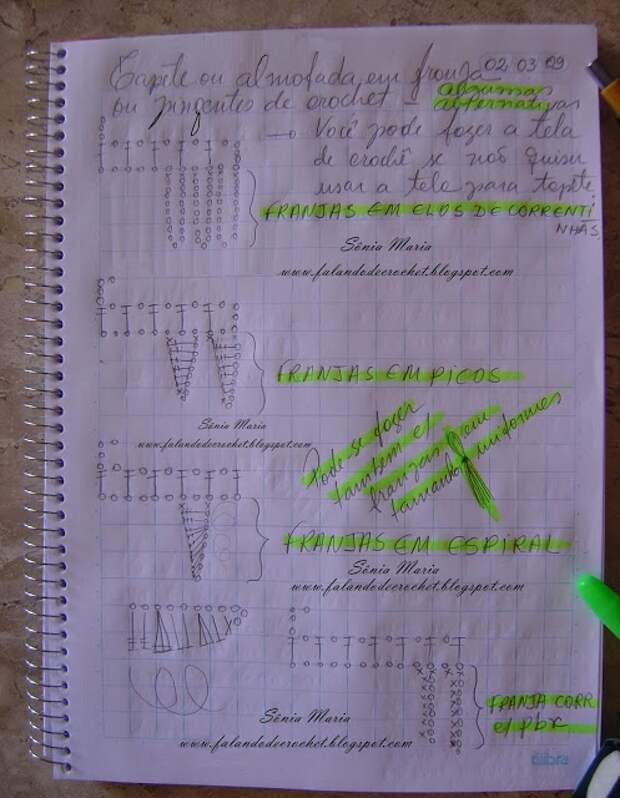 02 03 09
Tapete ou almofada em franja
ou pingentes de crochet - algumas
alternativas
Você pode fazer a tela
de crochê se não quiser
usar a tela para tapete.
FRANJAS EM ELOS DE CORRENTI
NHAS
Sônia Maria
www.falandodecrochet.blogspot.com
FRANJAS EM PICOS
Sônia Maria
www.falandodecrochet.blogspot.com
Pode se fazer
também c/
franjas em
tamanho uniformes
FRANJAS EM ESPIRAL
Sônia Maria
www.falandodecrochet.blogspot.com
FRANJA CORR
c/ pbx
Sônia Maria
www.falandodecrochet.blogspot.com
tilibra